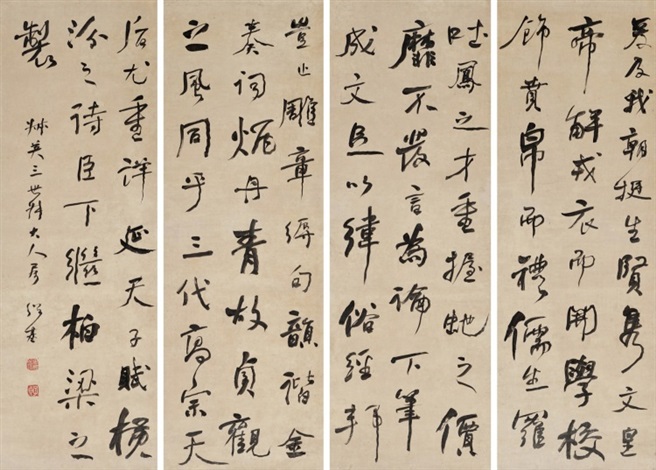 爰及我朝挺生賢雋文皇
帝解戎衣而開學校
飾賁帛而禮儒生羅
吐鳳之才重握虵之價
靡不發言為論下筆
成文足以緯俗經邦
豈止雕章縟句韻諧金
奏詞炳丹青故貞觀
之風同乎三代高宗天
后尤重詳延天子賦橫
汾之詩臣下繼柏梁之
製
英三世大人屬 紹基